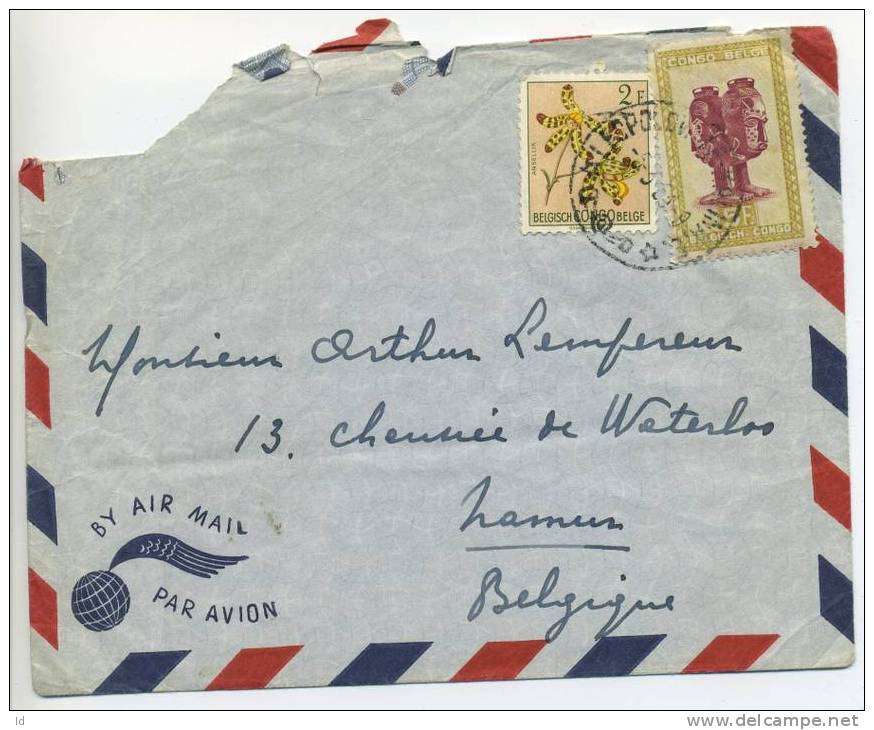 2 F
ANSELLIA
BELGISCH CONGO BELGE
CONGO BELGE
BELGISCH-CONGO
LEOPOLDVILLE
Monsieur Arthur Lempereur
13, Chaussée de Waterloo
Namur
Belgique
BY AIR MAIL
PAR AVION
ld
www.delcampe.net